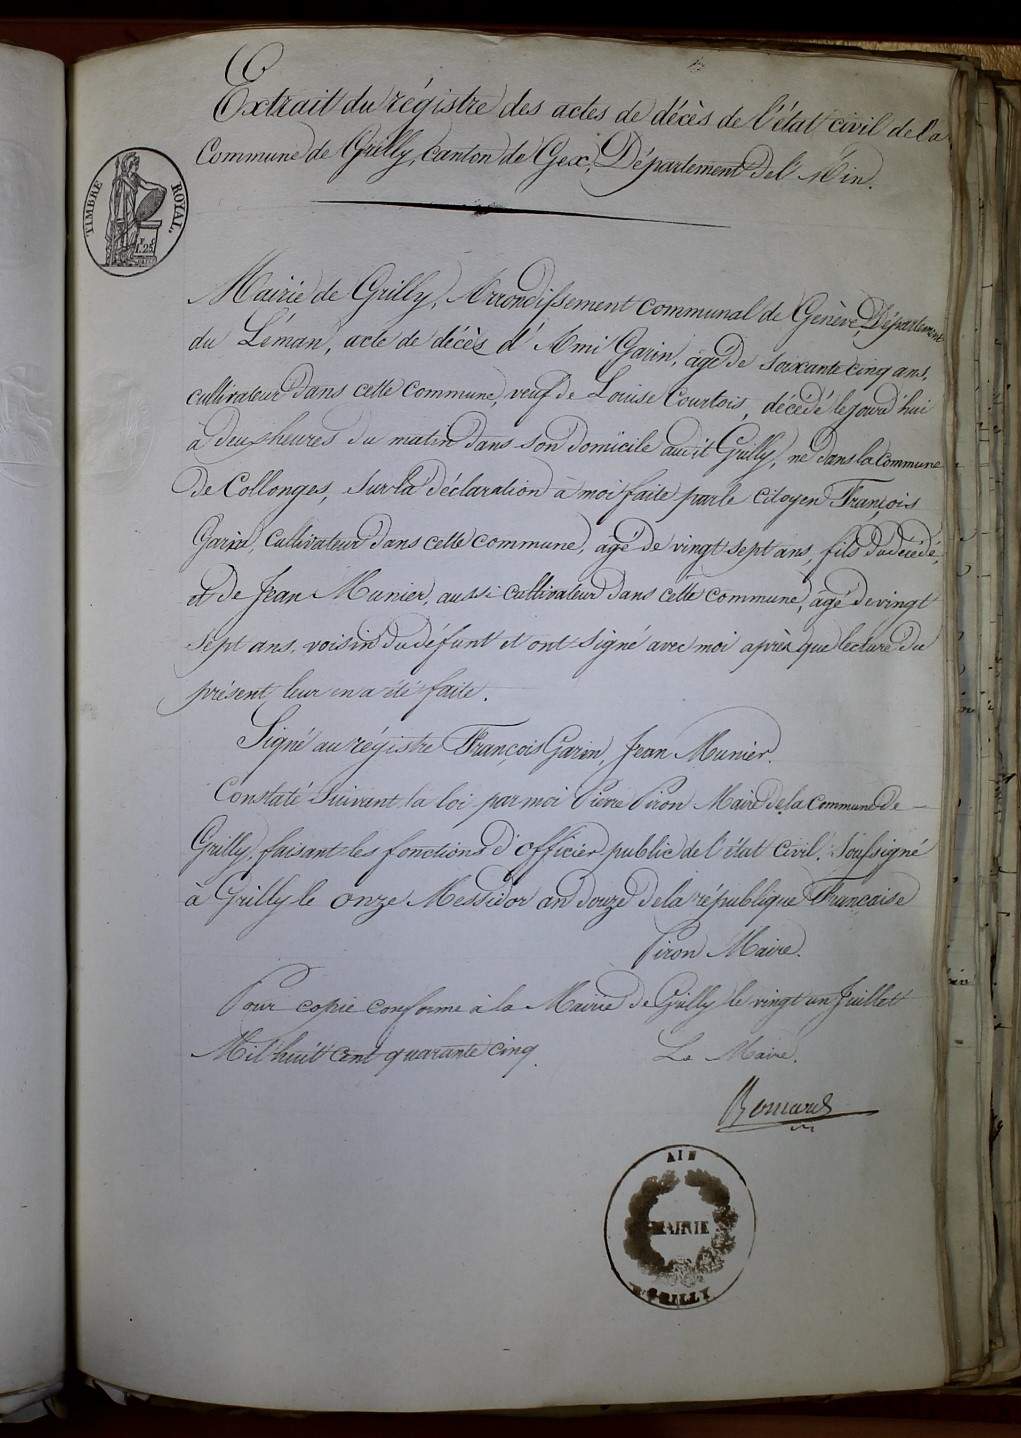 Extrait du régistre des actes de décès de l'état civil de la
Commune de Grilly, canton de Gex, Département de l'Ain.
TIMBRE ROYAL.
1.25
Mairie de Grilly, Arrondissement communal de Genève, Département
du Léman, acte de décès d'Ami Garin, âgé de soixante cinq ans,
cultivateur dans cette commune, veuf de Louise Courtois, décédé le jourd'hui
à deux heures du matin dans son domicile audit Grilly, né dans la commune
de Collonges, sur la déclaration à moi faite par le citoyen François
Garin, cultivateur dans cette commune, agé de vingt sept ans, fils du décédé,
et de Jean Munier, aussi cultivateur dans cette commune, âgé de vingt
sept ans, voisin du défunt et ont signé avec moi après que lecture du
présent leur en a été faite.
Signé au régistre François Garin, Jean Munier.
Constaté suivant la loi par moi Pierre Piron Maire de la commune de
Grilly, faisant les fonctions d'officier public de l'état civil. Soussigné
à Grilly le onze Messidor an douze de la république Française
Piron Maire.
Pour copie conforme à la Mairie de Grilly le vingt un Juillet
Mil huit cent quarante cinq.
Le Maire.
AIN
MAIRIE
GRILLY